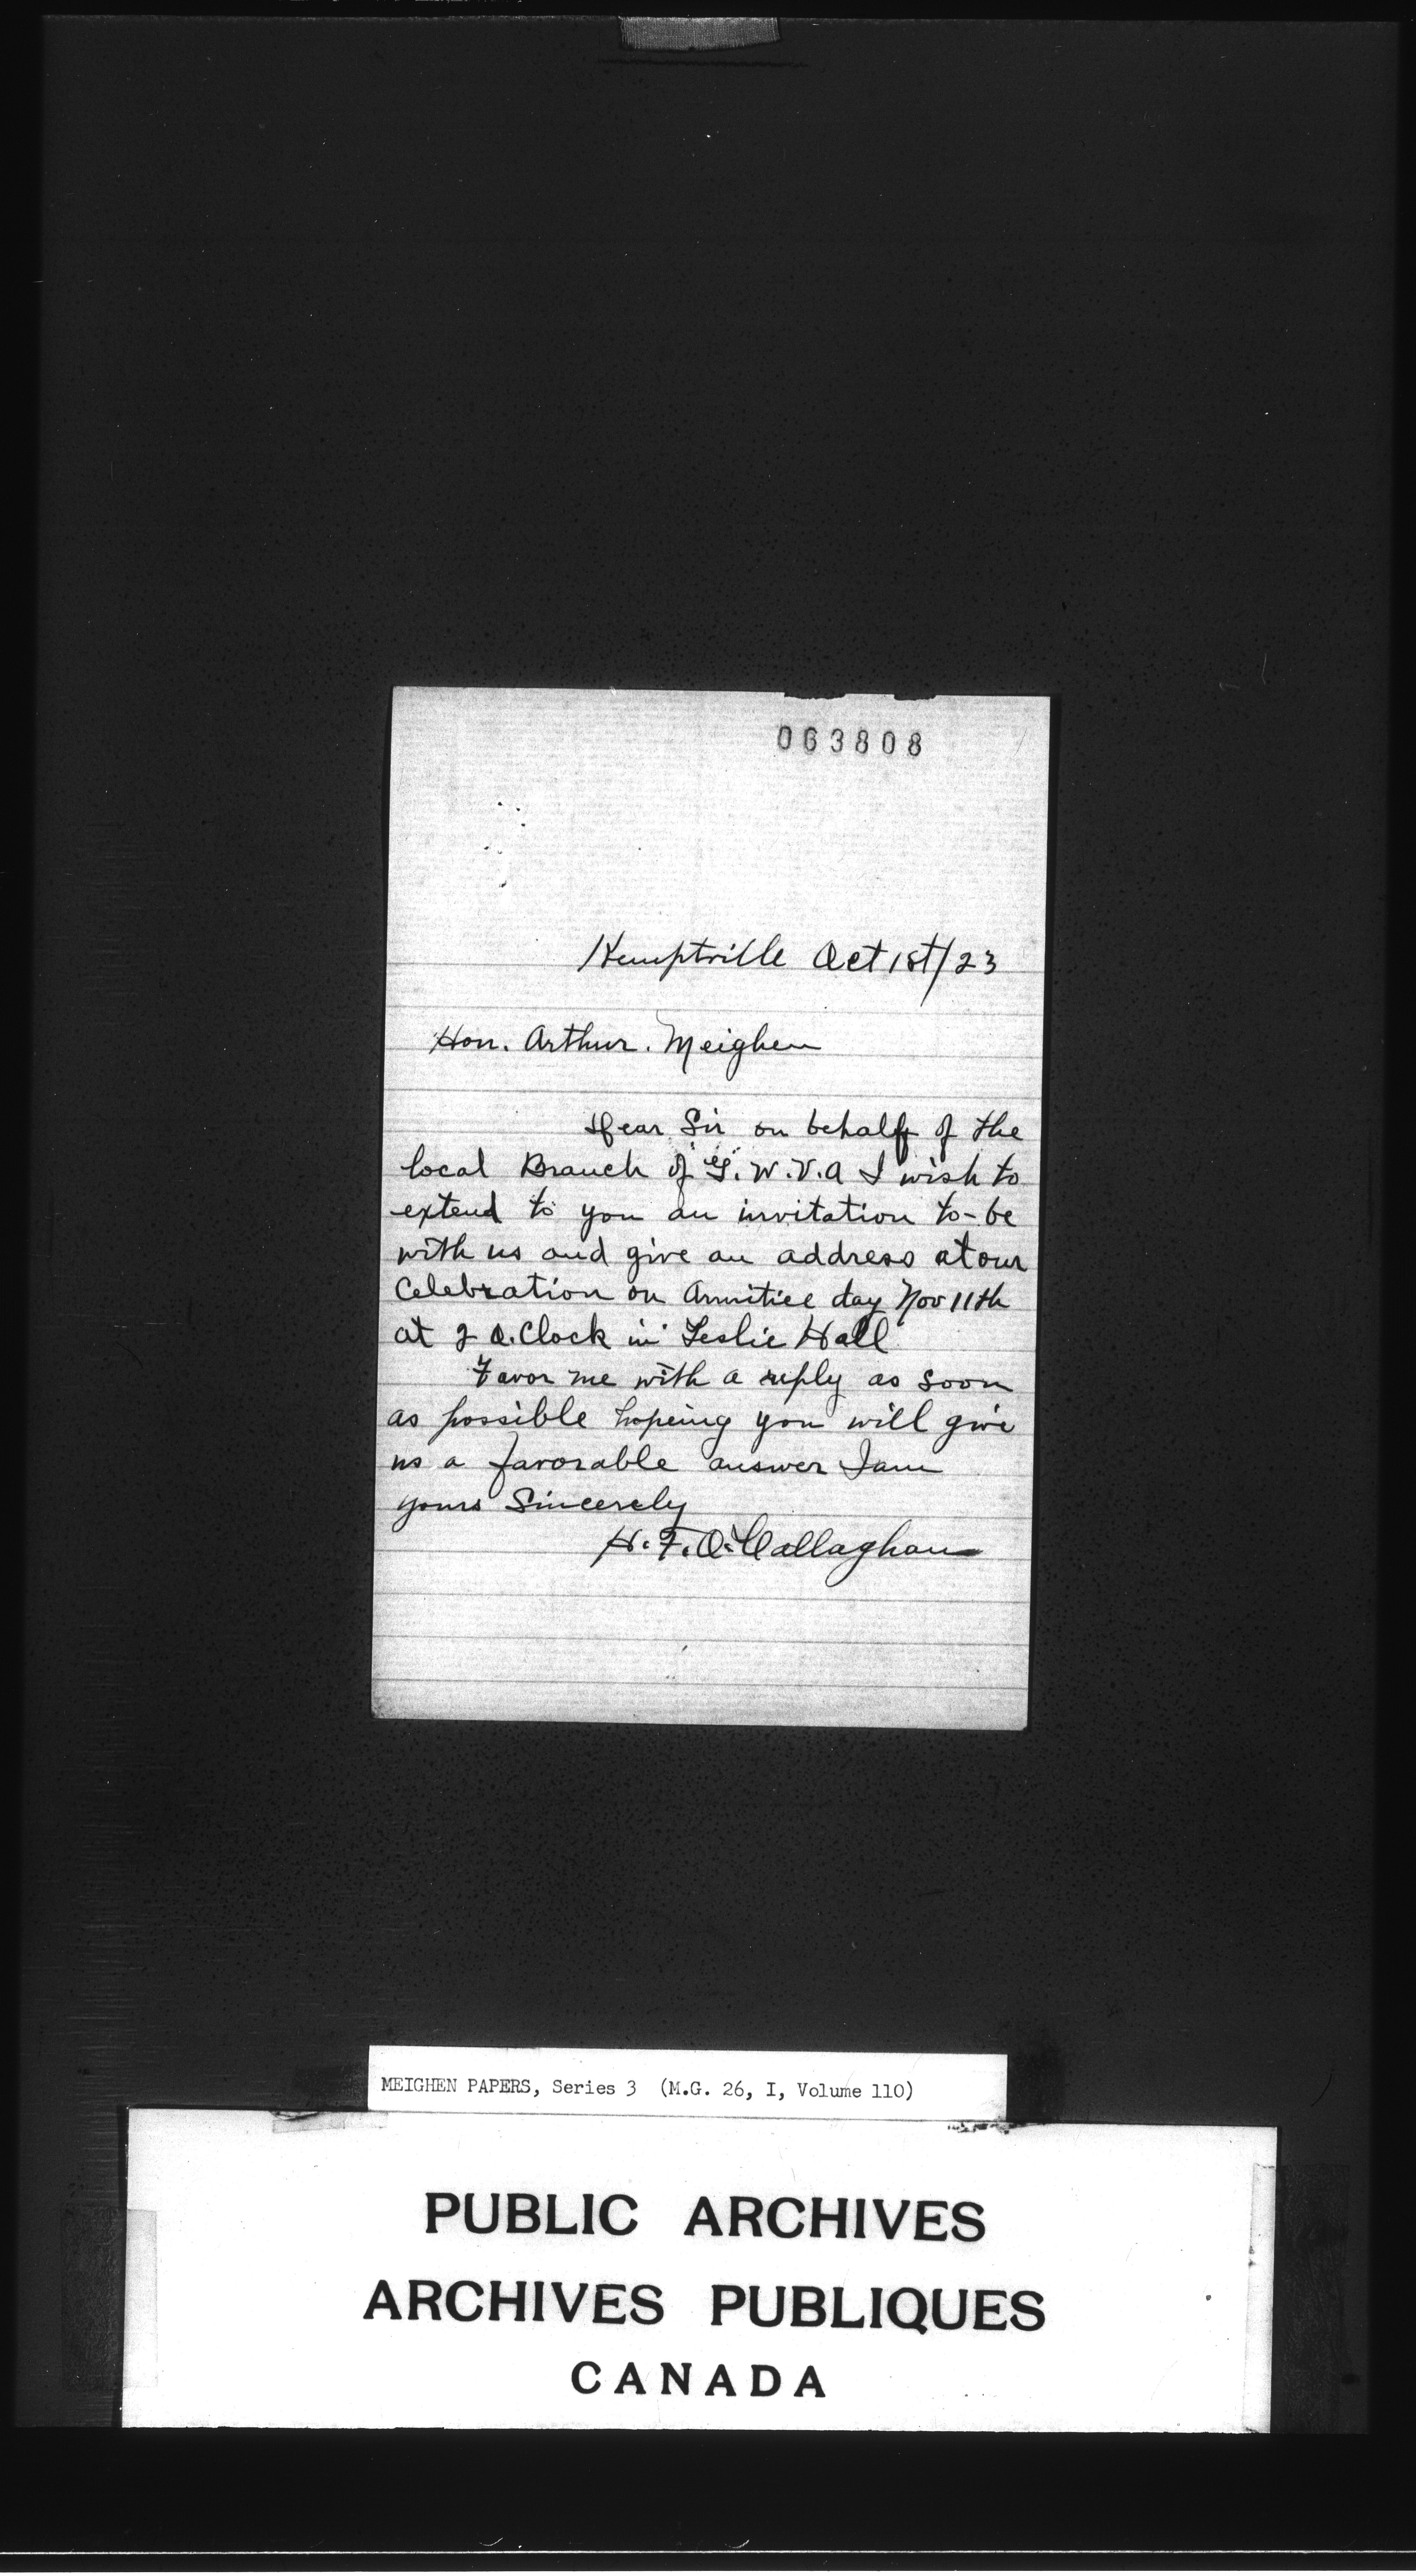 063808
Kemptville Oct 1st/23
Hon. Arthur. Meighen
Dear Sir on behalf of the
local Branch of G. W. V. A I wish to
extend to you an invitation to-be
with us and give an address at our
Celebration on Armitice day Nov 11th
at 2 O.Clock in Leslie Hall
Favor me with a reply as soon
as possible hopeing you will give
us a favorable answer I am
yours Sincerely
H. F. O'Callaghan
MEIGHEN PAPERS, Series 3 (M.G. 26, I, Volume 110)
PUBLIC ARCHIVES
ARCHIVES PUBLIQUES
CANADA